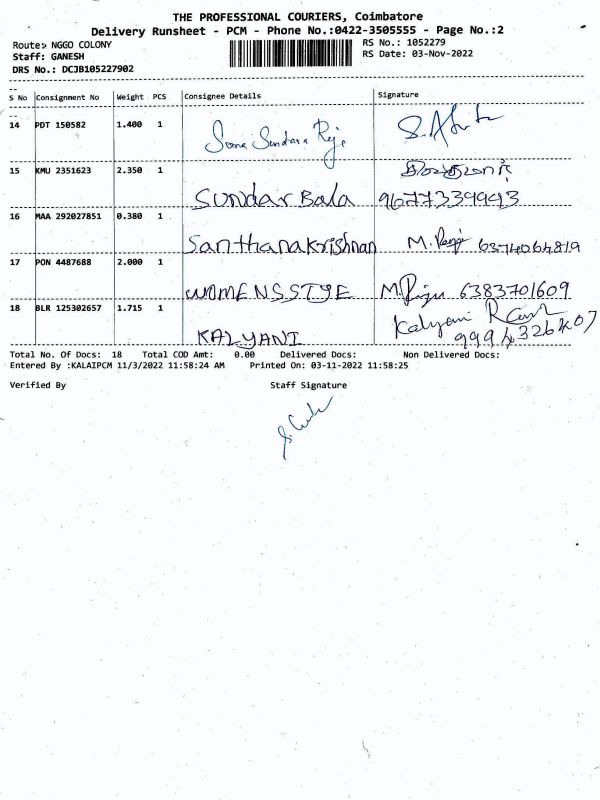 THE PROFESSIONAL COURIERS, Coimbatore
Delivery Runsheet - PCM - Phone No.:0422-3505555 - Page No.:2
Route: NGGO COLONY
RS No.: 1052279
Staff: GANESH
RS Date: 03-Nov-2022
DRS No.: DCJB105227902
S No Consignment No Weight PCS Consignee Details Signature
14 PDT 150582 1.400 1
Soma Sundara Raje
15 KMU 2351623 2.350 1
Sundar Bala 9677339993
16 MAA 292027851 0.380 1
Santhanakrishnan M. 6374064819
17 PON 4487688 2.000 1
WOMENSSTYE M. 6383701609
18 BLR 125302657 1.715 1 Kalyani
KALYANI 9994326407
Total No. Of Docs: 18 Total COD Amt: 0.00 Delivered Docs: Non Delivered Docs:
Entered By :KALAIPCM 11/3/2022 11:58:24 AM Printed On: 03-11-2022 11:58:25
Verified By Staff Signature